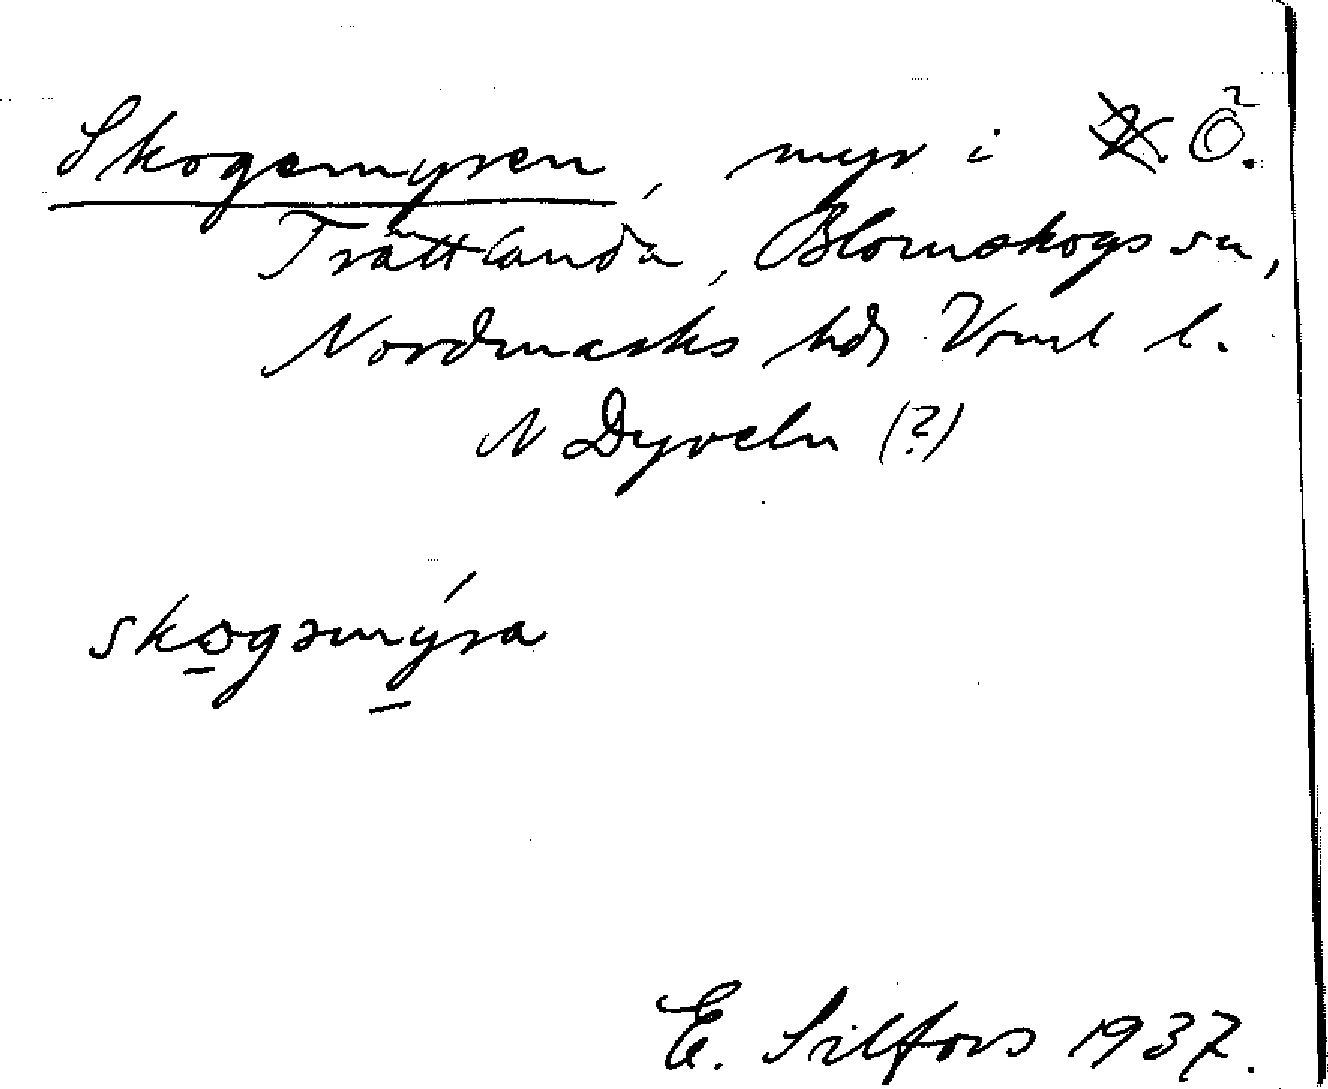 Skogemyren, myr i Ö.
Trättlanda, Blomskogs sn,
Nordmarks hds Vrml l.
N Dyveln (?)
skogəmýra
E. Silfors 1937.